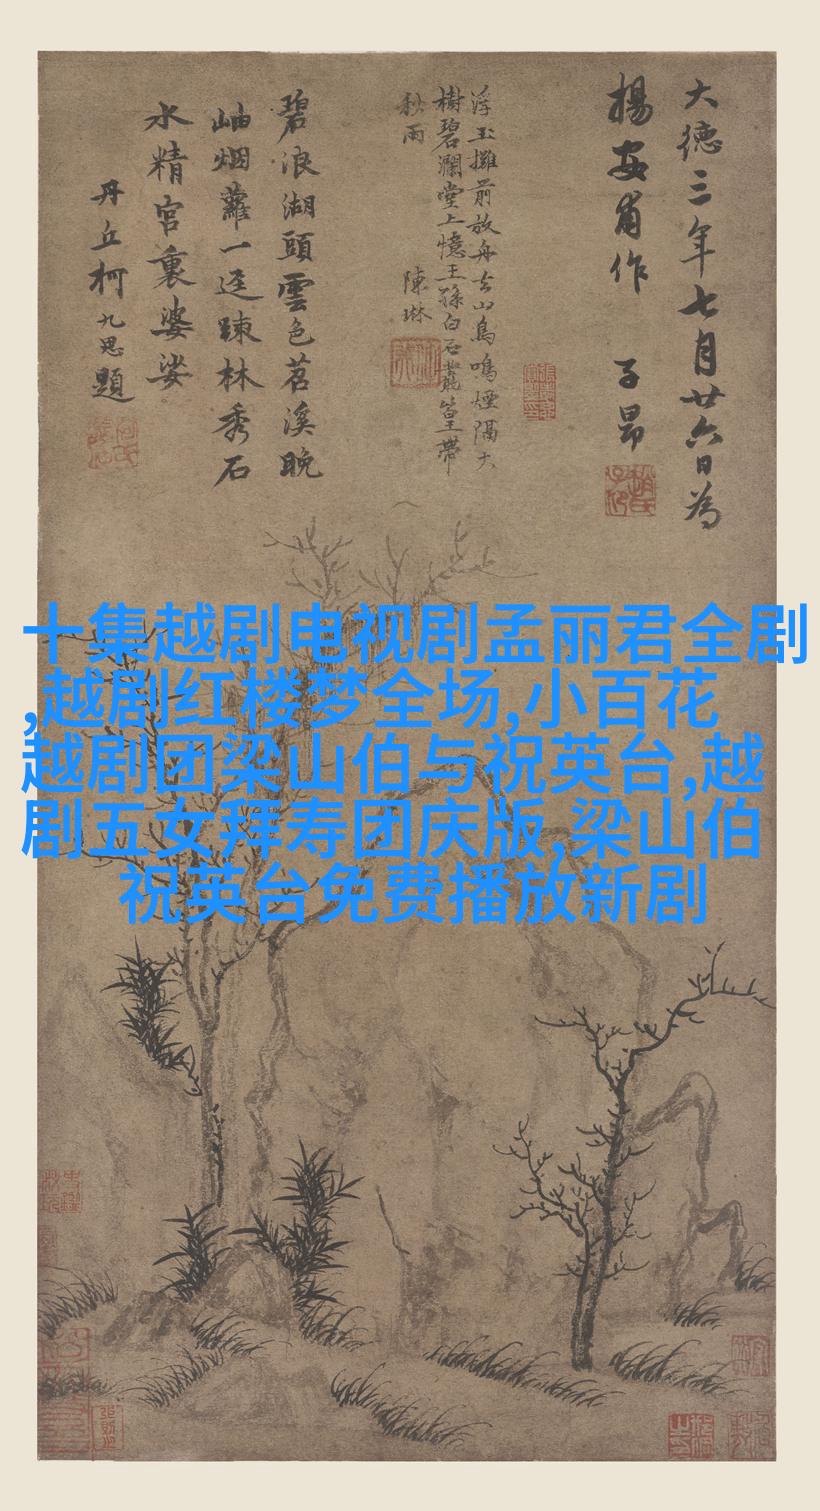 大德三年七月廿六日為
楊安甫作 子昂
浮玉攤前放舟去山鳥鳴煙隔大
樹碧瀾堂上憶王孫白石叢篁帶
秋雨 陳琳
碧浪湖頭雲色苕溪晚
岫烟蘿一逕踈林秀石
水精宮裏婆娑
丹丘柯九思題
十集越剧电视剧孟丽君全剧
,越剧红楼梦全场,小百花
越剧团梁山伯与祝英台,越
剧五女拜寿团庆版,梁山伯
祝英台免费播放新剧